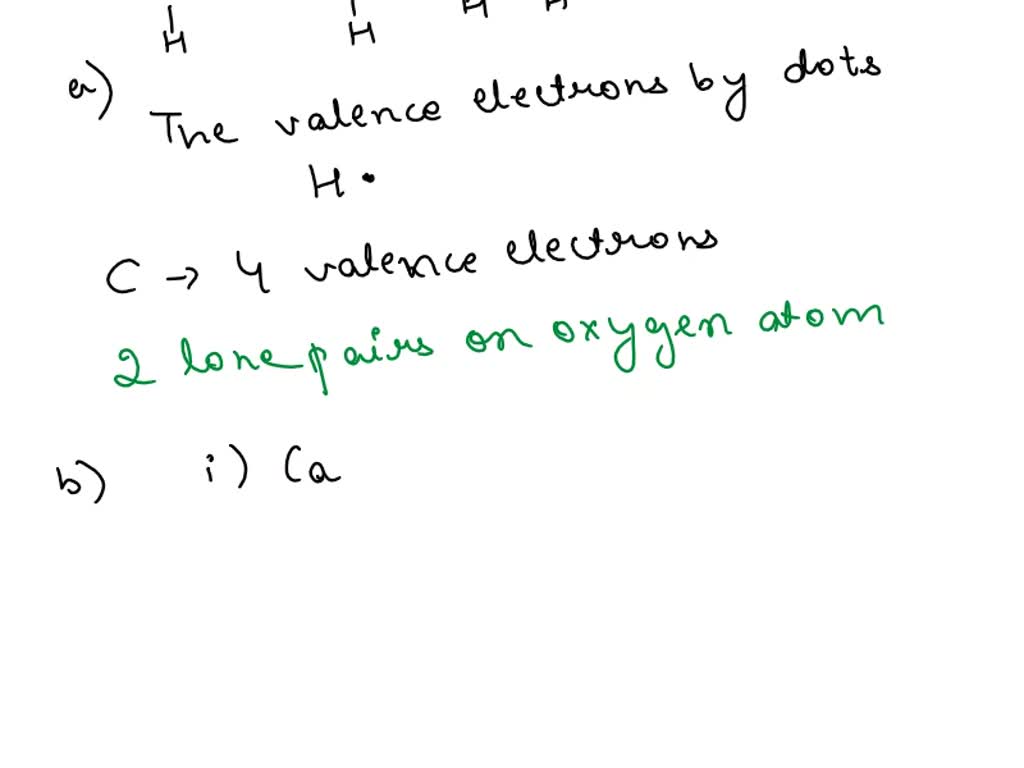 H H H H
a) The valence electrons by dots
H •
C → 4 valence electrons
2 lone pairs on oxygen atom
b) i) Ca